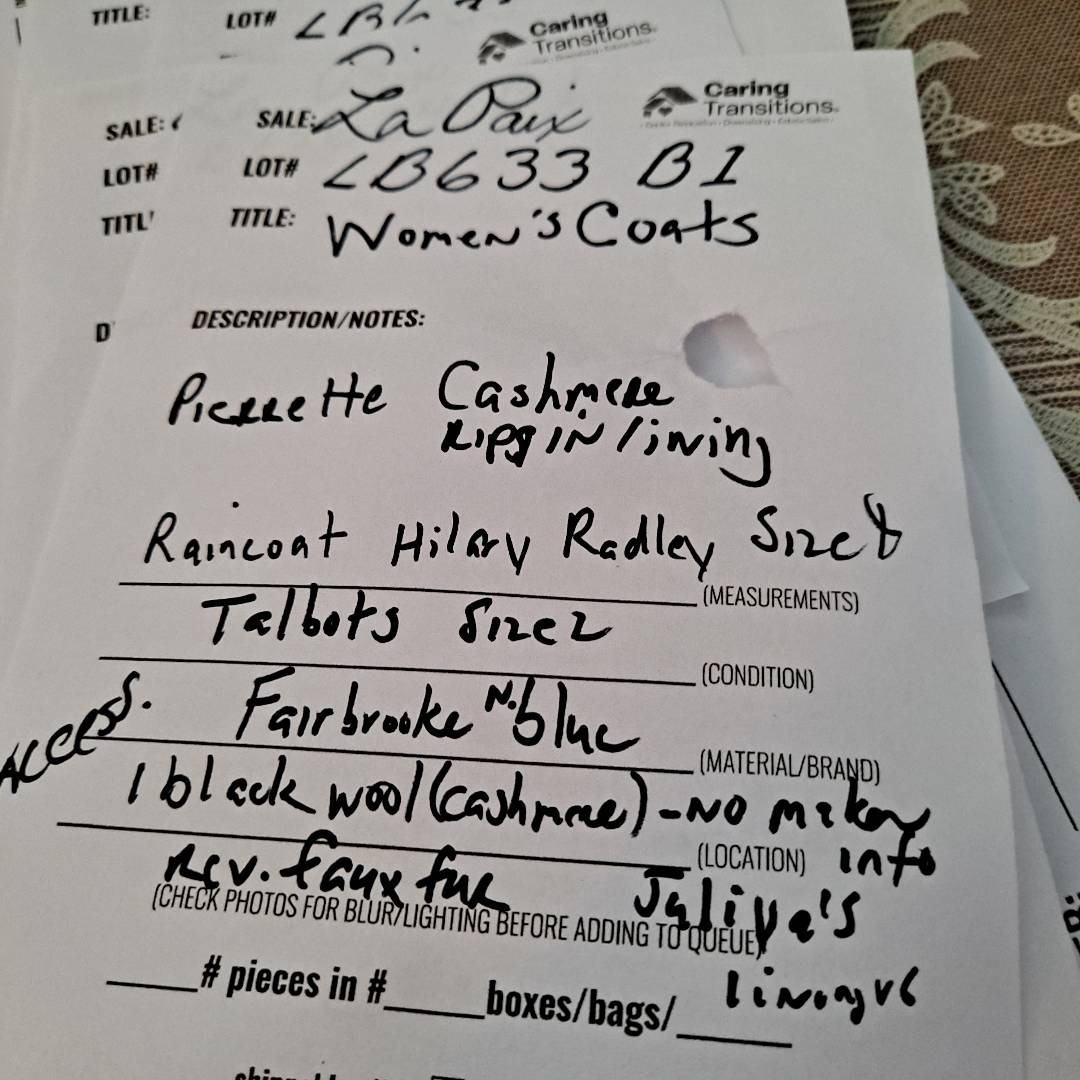 TITLE: LOT#
Caring
Transitions
SALE: SALE: La Paix
Caring
Transitions
LOT# LOT# LB633 B1
TITL TITLE: Women's Coats
D DESCRIPTION/NOTES:
Pierrette Cashmere
Rips in lining
Raincoat Hilary Radley Size 8
(MEASUREMENTS)
Talbots Size 2
(CONDITION)
Access. Fairbrooke N. blue
(MATERIAL/BRAND)
1 black wool (cashmere) - No maker
(LOCATION) info
Rev. faux fur
(CHECK PHOTOS FOR BLUR/LIGHTING BEFORE ADDING TO QUEUE)
# pieces in # boxes/bags/